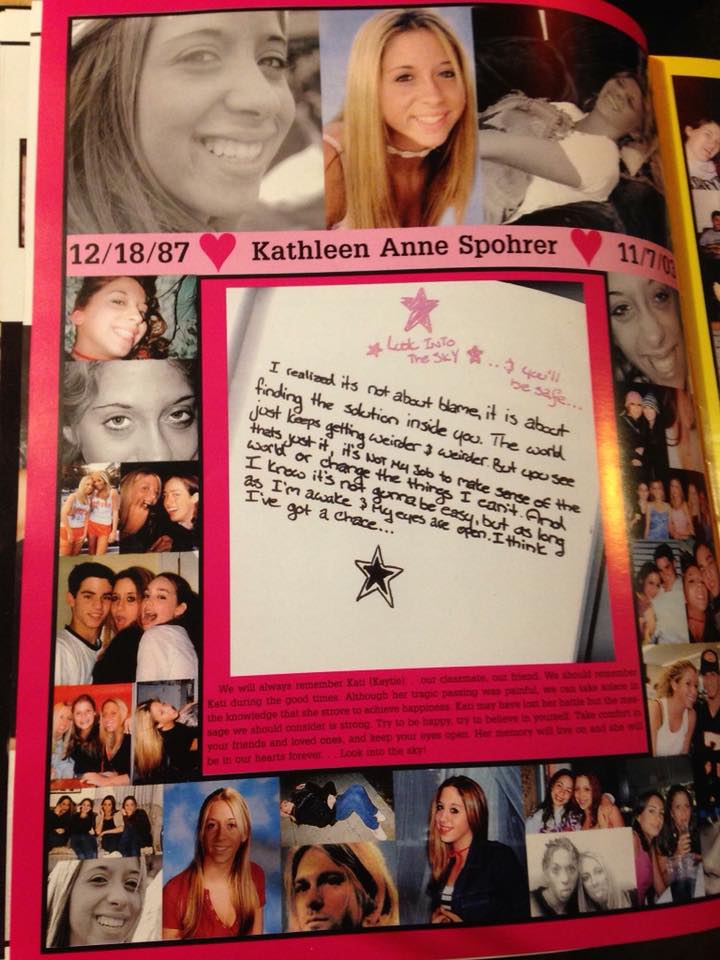 12/18/87 Kathleen Anne Spohrer 11/7/03
Look INTO
The SKY ..& you'll
be safe...
I realized its not about blame, it is about
finding the solution inside you. The world
just keeps getting weirder & weirder. But you see
thats just it, it's NOT My Job to make sense of the
world or change the things I can't. And
I know it's not gonna be easy, but as long
as I'm awake & My eyes are open. I think
I've got a chace...
We will always remember Kati (Kaytie) . . our classmate, our friend. We should remember
Kati during the good times. Although her tragic passing was painful, we can take solace in
the knowledge that she strove to achieve happiness. Kati may have lost her battle but the mes-
sage we should consider is strong. Try to be happy, try to believe in yourself. Take comfort in
your friends and loved ones, and keep your eyes open. Her memory will live on and she will
be in our hearts forever. . . Look into the sky!